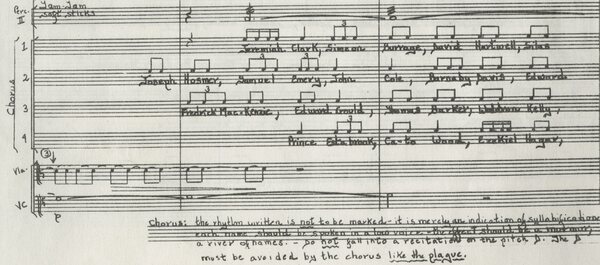 Perc. III
Tam-Tam
soft sticks
3
Chorus
1 Jeremiah Clark, Simeon Burrage, David Hartwell, Silas
3 3
2 Joseph Hosmer, Samuel Emery, John Cole, Barnaby Davis, Edward
3 3 3
3 Fredrick Mac-Kenzie, Edward Arnold, Thomas Barker, Waldron Kelly,
3
4 Prince Estabrook, Ca-to Wood, Ezekiel Hager,
3
Vla.
VC
p
Chorus: the rhythm written is not to be marked - it is merely an indication of syllabifications
each name should be spoken in a low voice. The effect should be a murmur,
a river of names. - Do not fall into a recitation on the pitch B. The B
must be avoided by the chorus like the plague.